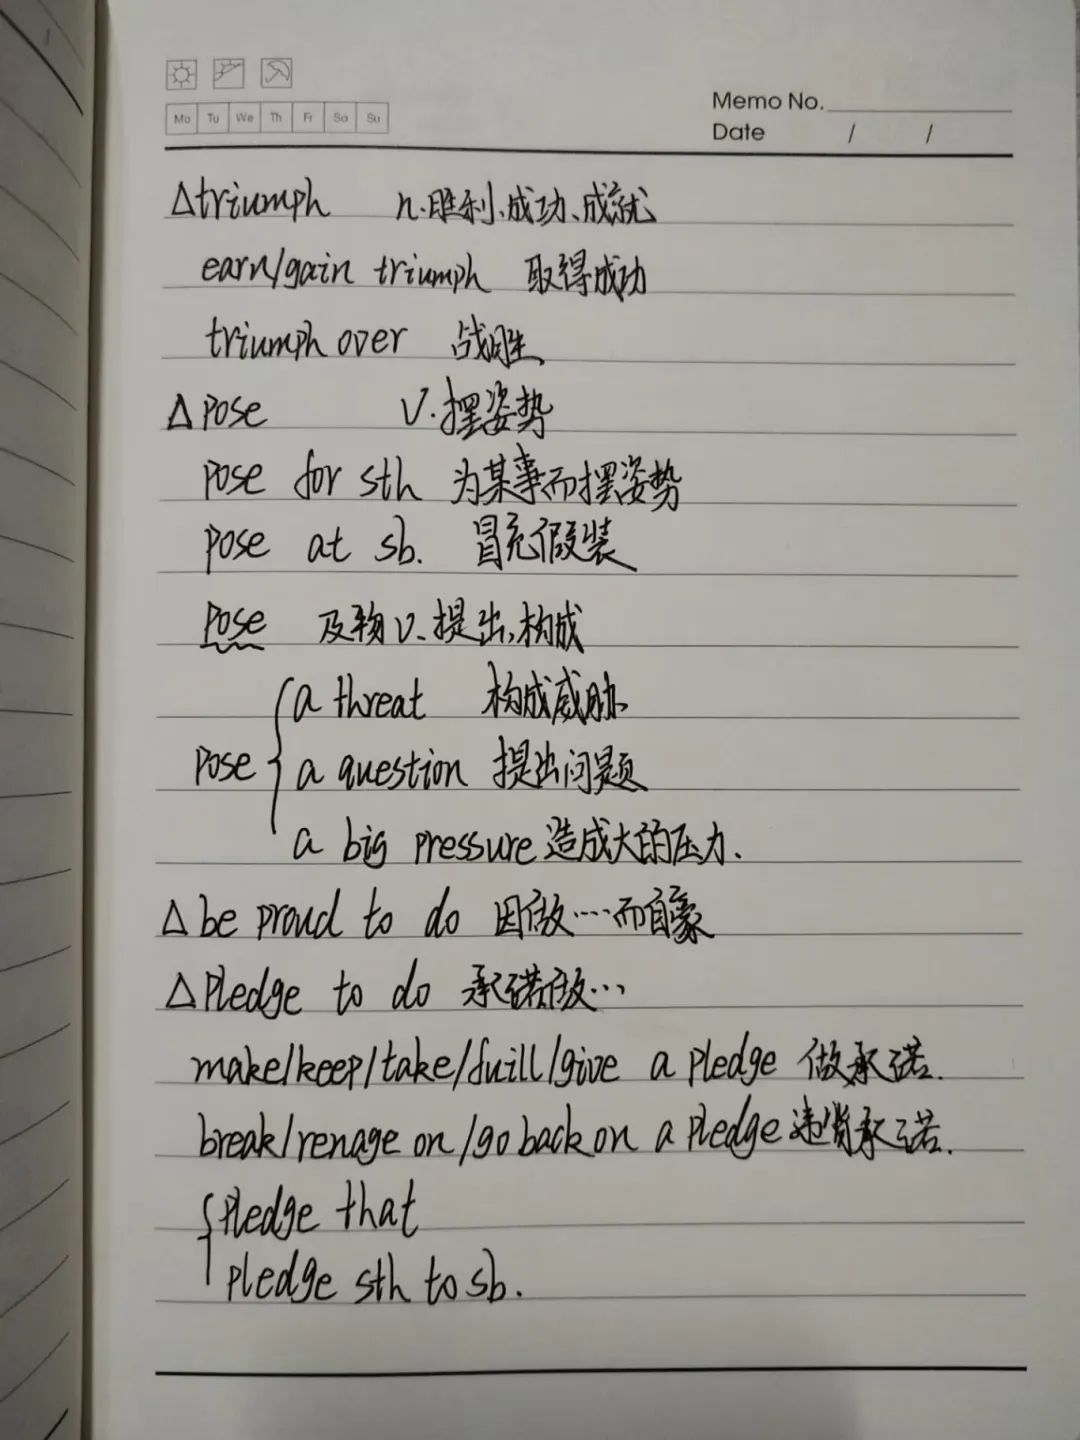 Memo No.
Mo Tu We Th Fr Sa Su
Date / /
△triumph n.胜利、成功、成就
earn/gain triumph 取得成功
triumph over 战胜
△pose v.摆姿势
pose for sth 为某事而摆姿势
pose at sb. 冒充假装
pose 及物v.提出,构成
a threat 构成威胁
pose a question 提出问题
a big pressure 造成大的压力.
△be proud to do 因做……而自豪
△Pledge to do 承诺做…
make/keep/take/fuill/give a pledge 做承诺.
break/renage on/go back on a pledge 违背承诺.
pledge that
pledge sth to sb.